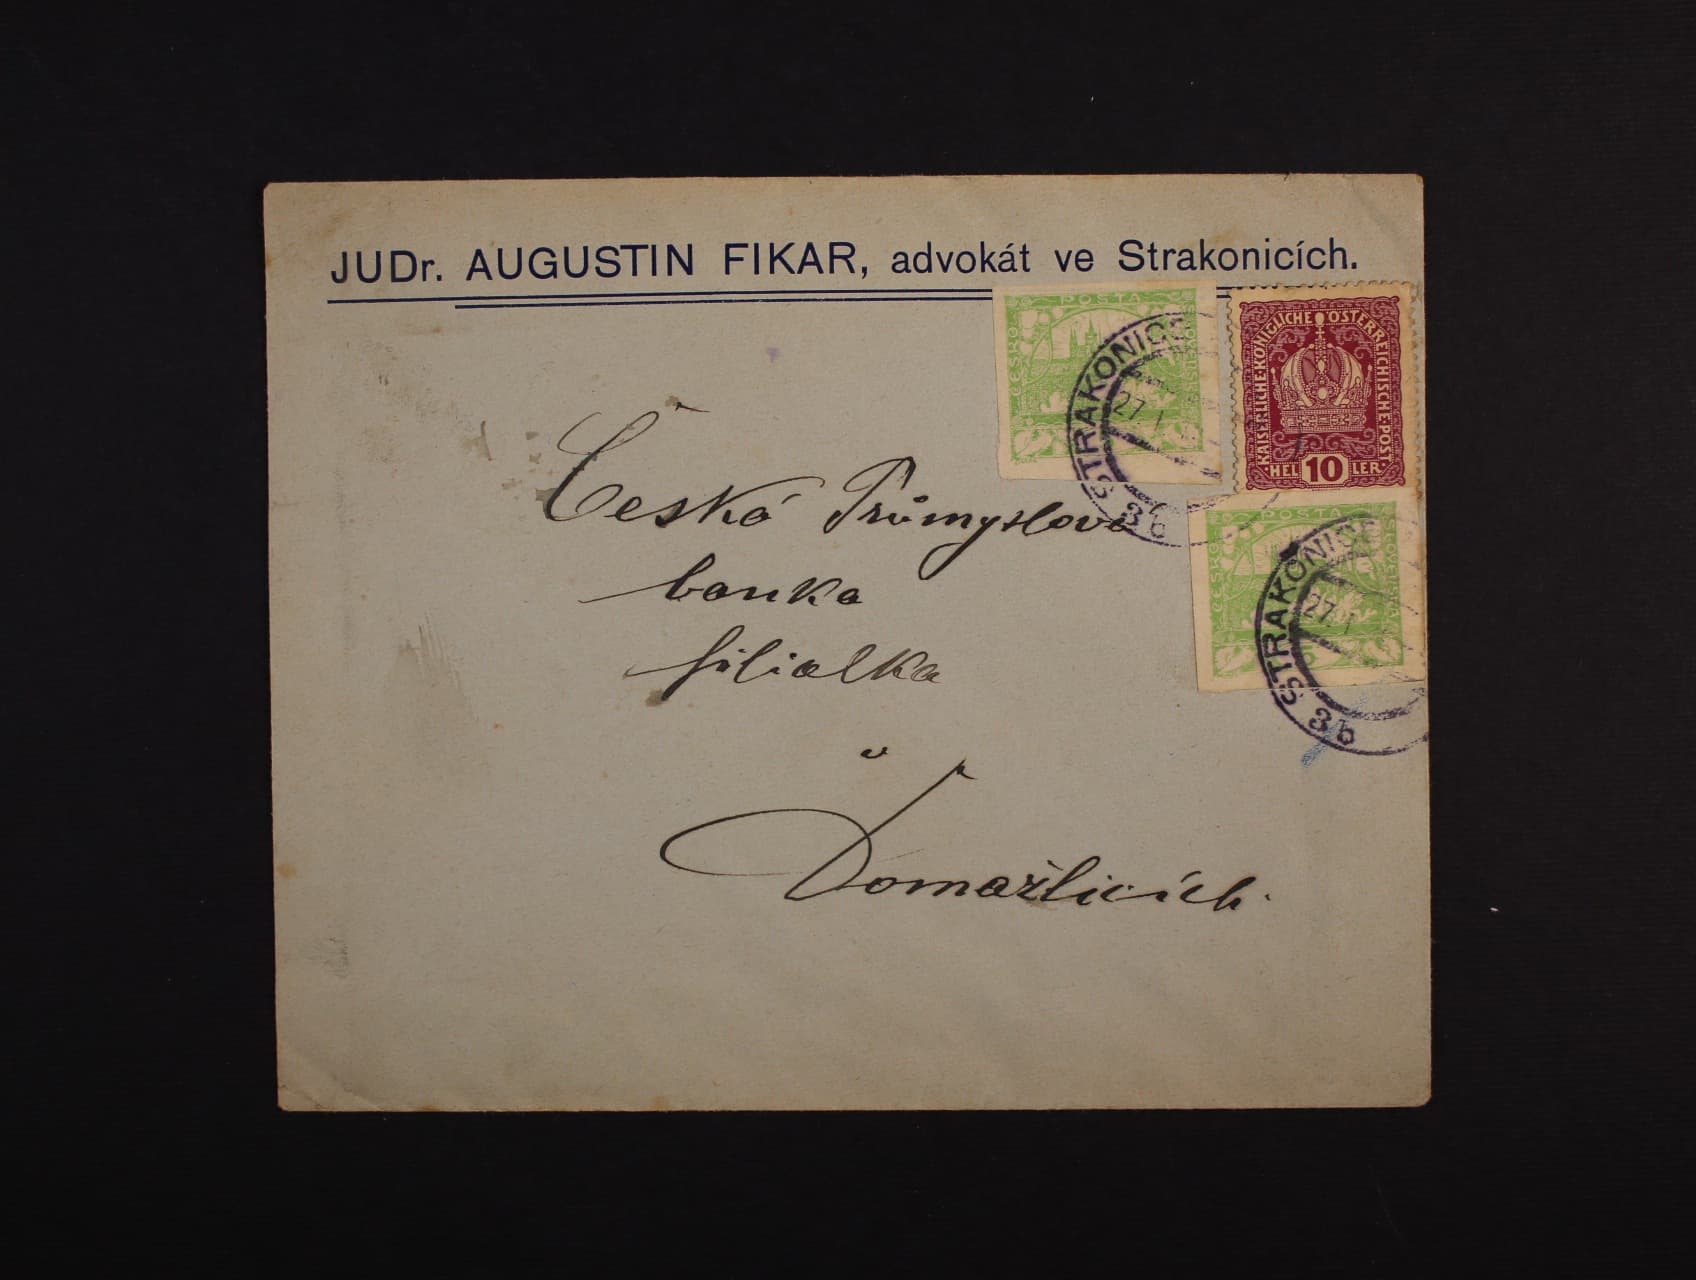 JUDr. AUGUSTIN FIKAR, advokát ve Strakonicích.
POSTA
ČESKO
SLOVENSKÁ
STRAKONICE
27. I.
3b
KAISERLICHE KÖNIGLICHE ÖSTERREICHISCHE POST
HEL 10 LER
POSTA
ČESKO
SLOVENSKÁ
5
STRAKONICE
27. I.
3b
Česká Průmyslová
banka
filialka
v
Domažlicích.